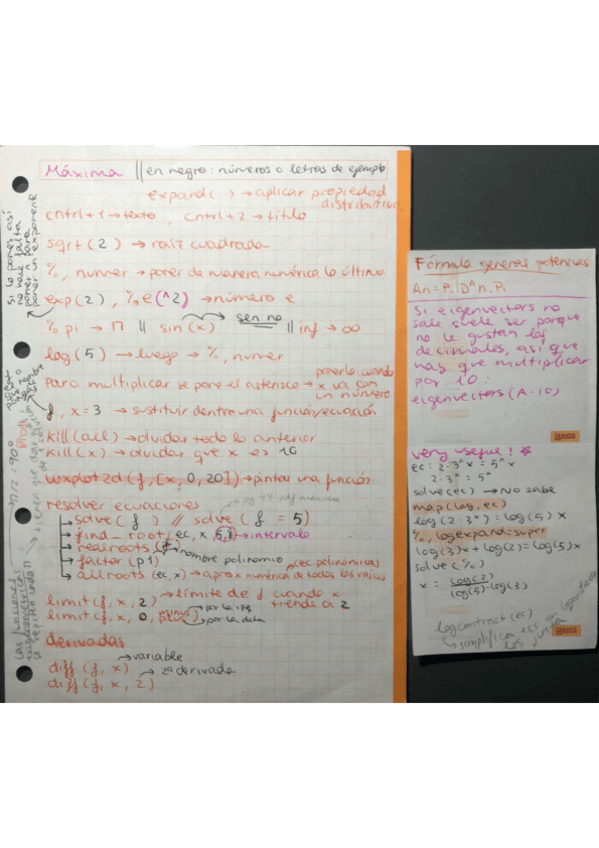 Máxima || en negro: números o letras de ejemplo
expand( ) → aplicar propiedad distributiva
cntrl+1 → texto, cntrl+2 → título
sqrt(2) → raíz cuadrada
%, numer → poner de manera numérica lo último
exp(2), %e(^2) → número e
%pi → π || sin(x) → sen no || inf → ∞
log(5) → luego → %, numer
Para multiplicar se pone el asterisco → ponerlo cuando x va con un número
f, x=3 → sustituir dentro una función/ecuación
kill(all) → olvidar todo lo anterior
kill(x) → olvidar que x es 10
wxplot2d(f, [x, 0, 20]) → pintar una función
pg 49 pdf maxima
resolver ecuaciones
→ solve(f) // solve(f = 5)
→ find_root(ec, x, 5, 8) → intervalo
→ realroots(f)
→ factor(p1) nombre polinomio (ec polinómicas)
→ allroots(ec, x) → aprox numérica de todas las raíces
limit(f, x, 2) → límite de f cuando x tiende a 2
limit(f, x, 0, minus) → por la izq
plus → por la dcha
derivadas
diff(f, x) → variable
diff(f, x, 2) → 2ª derivada
si lo pones así no hace falta poner
para poner un exponente
π/2 = 90º
las funciones trigonométricas se repiten cada π
Fórmula general potencias
An = P. D^n. Pi
Si eigenvectors no
sale suele ser porque
no le gustan los
decimales, así que
hay que multiplicar
por 10:
eigenvectors(A·10)
very-sefue!
ec: 2·3^x = 5^x
2·3^x = 5^x
solve(ec) → No sabe
map(log, ec)
log(2·3^x) = log(5)x
%, logexpand=super
log(3)x + log(2) = log(5)x
solve(%)
x = log(2) / log(5)-log(3)
logcontract(ec)
→ simplifica ecs con logaritmos
los junta